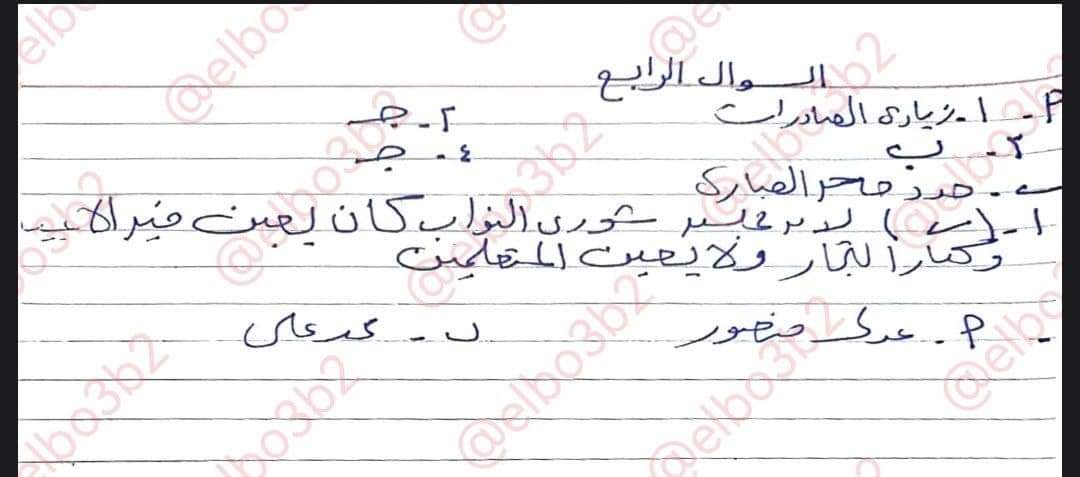 السوال الرابع
P- ١- زيادة الصادرات ٢- جـ
٣- ب ٤- جـ
ب- حدد ماحر العبارى
١- (ب) لا بر مجلس شورى النواب كان يعين فيه الا
وكبار التجار ولا يعين المتعلمين
P- عدلى منصور ب- محمد على
@elbo3b2